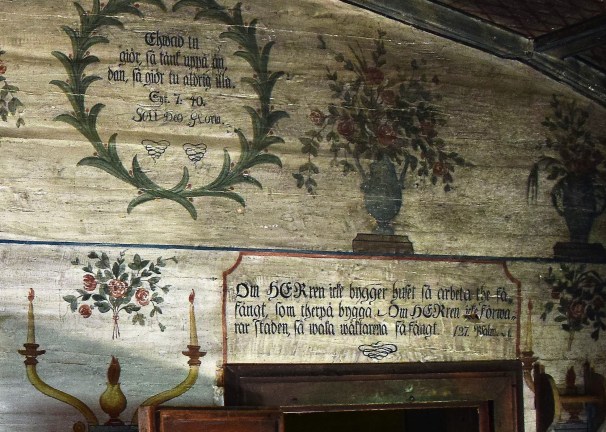 Ehwad tu
giör, så tänk uppå än,
dan, så giör tu aldrig illa.
Syr. 7: 40.
Soli Deo Gloria.
Om HERren icke bygger huset så arbeta the så
fåfängt, som therpå bygga. Om HERren icke förwa,
rar staden, så waka wäktarena fåfängt. 127. Psalm. v. 1